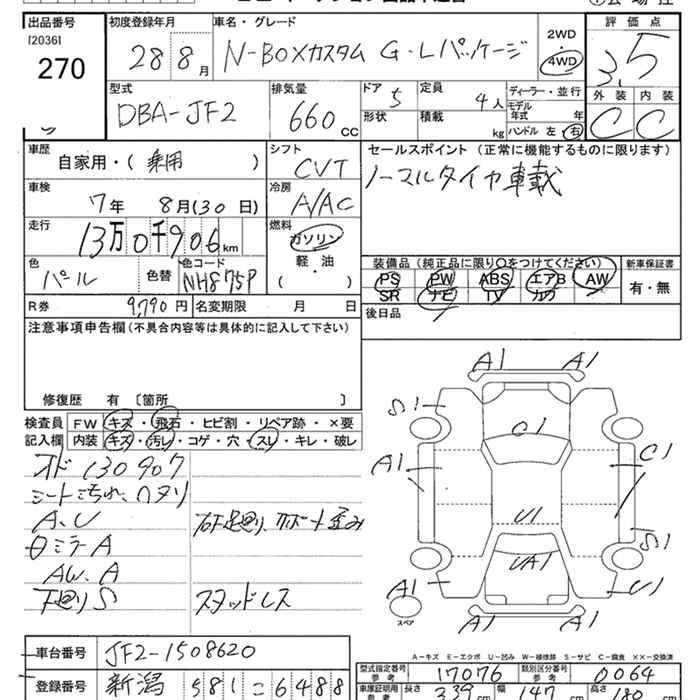 出品番号 初度登録年月 車名・グレード 評価点
[2036]
270 28 8月 N-BOXカスタム G・Lパッケージ 2WD・4WD 3.5
型式 排気量 ドア 定員 ディーラー・並行 外装 内装
DBA-JF2 660cc 5 4人 モデル年式 年 C C
形状 積載 kg ハンドル 左・右
車歴 シフト セールスポイント (正常に機能するものに限ります)
自家用・(乗用) CVT ノーマルタイヤ車載
車検 冷房
7年 8月(30日) A/AC
走行 燃料
13万0千906km ガソリン
軽・油
( )
色 色替 色コード 装備品 (純正品に限り○をつけてください) 新車保証書
パール NH875P PS PW ABS エアB AW 有・無
SR ナビ TV カワ
R券 9,790円 名変期限 月 日 後日品
注意事項申告欄(不具合内容等は具体的に記入して下さい)
修復歴 有 [箇所 ]
検査員 FW キズ・飛石・ヒビ割・リペア跡・×要
記入欄 内装 キズ・汚レ・コゲ・穴・スレ・キレ・破レ
オド130907
シート汚れ、ヘタリ
A、U
ミラーA
AW、A
下廻りS スタッドレス
A1 A1
S1
C1
A1 C1
U1
UA1 S1
A1 U1
A1 A1
スペア
A-キズ E-エクボ U-凹み W-補修跡 S-サビ C-腐食 ××-交換済
車台番号 JF2-1508620
型式指定番号 参考 17076 類別区分番号 参考 0064
登録番号 新潟 581 こ 6488
車庫証明用 参考 長さ 339cm 幅 147cm 高さ 180cm